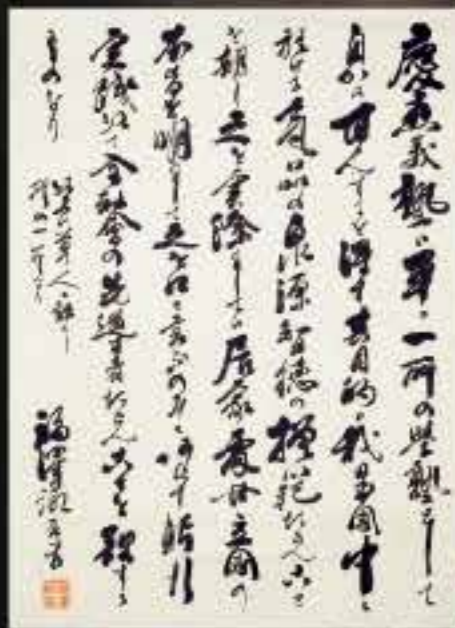 慶應義塾ハ単ニ一所の学塾として
自から甘んするを得す其目的ハ我日本國中ニ
於ける気品の泉源智徳の模範たらんこと
を期し之を実際にしてハ居家處世立國の
本旨を明にして之を口に言ふのみにあらす躬行
実践以て全社會の先導者たらんことを欲する
ものなり
福澤諭吉書